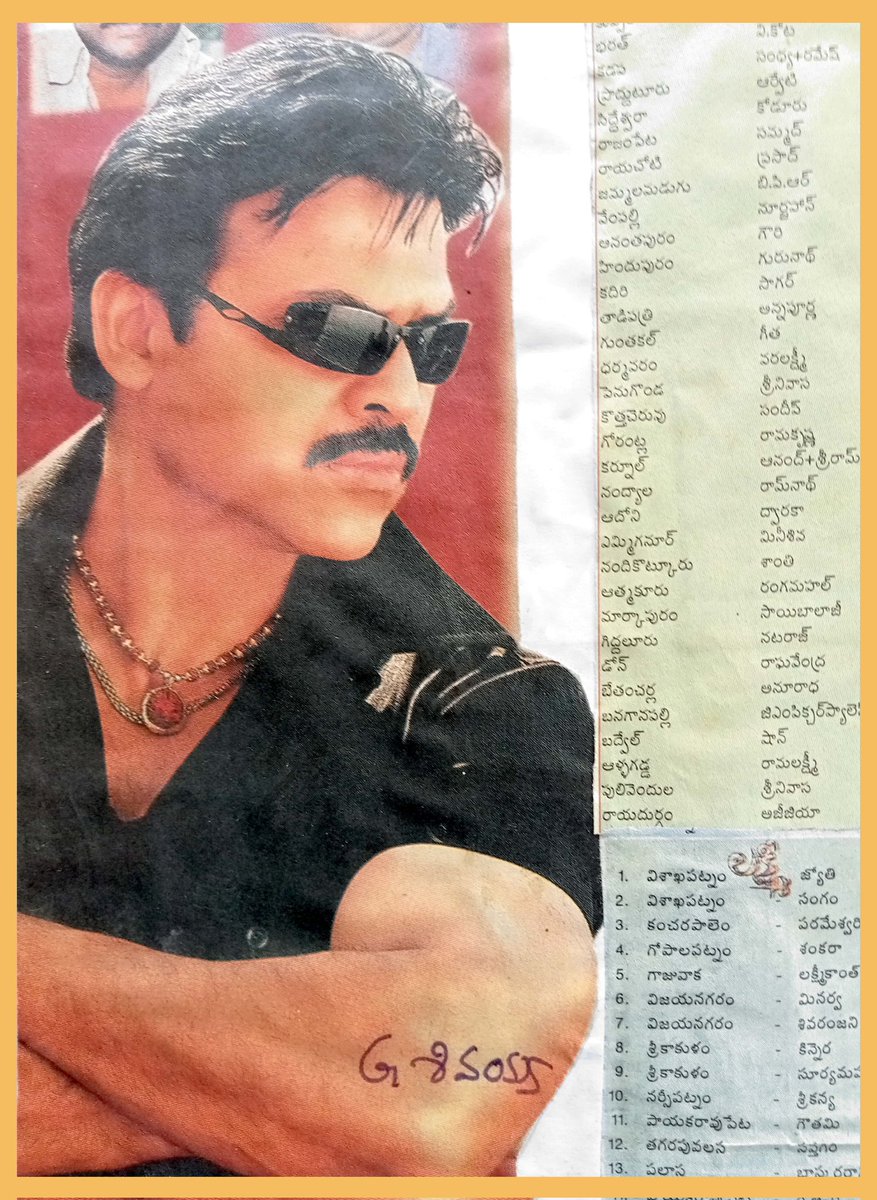 వి.కోట
భరత్ సంధ్య+రమేష్
కడప ఆర్వేటి
ప్రొద్దుటూరు కోడూరు
సిద్దేశ్వరా సమ్మద్
రాజంపేట ప్రసాద్
రాయచోటి బి.పి.ఆర్
జమ్మలమడుగు నూర్జహాన్
వేంపల్లి గౌరి
అనంతపురం గురునాథ్
హిందుపురం సాగర్
కదిరి అన్నపూర్ణ
తాడిపత్రి గీత
గుంతకల్ వరలక్ష్మీ
ధర్మవరం శ్రీనివాస
పెనుగొండ సందీప్
కొత్తచెరువు రామకృష్ణ
గోరంట్ల ఆనంద్+శ్రీరామ్
కర్నూల్ రామ్‌నాథ్
నంద్యాల ద్వారకా
ఆదోని మినీశివ
ఎమ్మిగనూర్ శాంతి
నందికొట్కూరు రంగమహల్
ఆత్మకూరు సాయిబాలాజీ
మార్కాపురం నటరాజ్
గిద్దలూరు రాఘవేంద్ర
డోన్ అనూరాధ
బేతంచర్ల జిఎంపిక్చర్‌ప్యాలె
బనగానపల్లి షాన్
బద్వేల్ రామలక్ష్మీ
ఆళ్ళగడ్డ శ్రీనివాస
పులివెందుల అజీజియా
రాయదుర్గం
లక్ష్మీ
1. విశాఖపట్నం - జ్యోతి
2. విశాఖపట్నం - సంగం
3. కంచరపాలెం - పరమేశ్వరి
4. గోపాలపట్నం - శంకరా
5. గాజువాక - లక్ష్మీకాంత్
6. విజయనగరం - మినర్వ
7. విజయనగరం - శివరంజని
8. శ్రీకాకుళం - కిన్నెర
9. శ్రీకాకుళం - సూర్యమహ
10. నర్సీపట్నం - శ్రీకన్య
11. పాయకరావుపేట - గౌతమి
12. తగరపువలస - సప్తగిం
13. పలాస
G శివయ్య